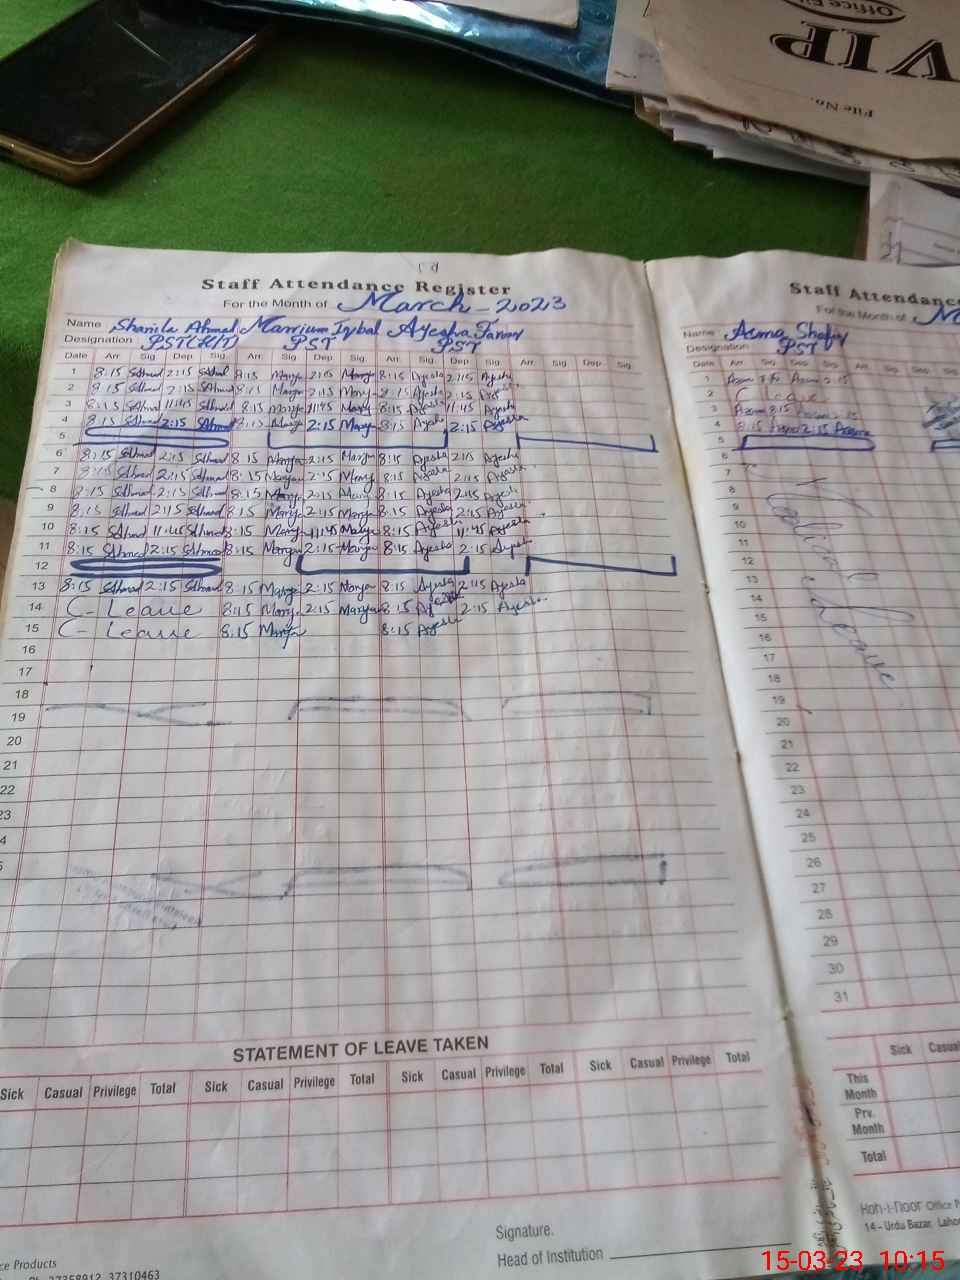 VIP
Office Fi
File No.
Staff Attendance Register
For the Month of March - 2023
Name Shamila Ahmad Marrium Iqbal Ayesha
Designation PST(H/T) PST PST
Date Arr. Sig. Dep. Sig. Arr. Sig. Dep. Sig. Arr. Sig. Dep. Sig. Arr. Sig. Dep. Sig.
1 8:15 SAhmad 2:15 SAhmad 8:15 Marym 2:15 Marym 8:15 Ayesha 2:15 Ayesha
2 8:15 SAhmad 2:15 SAhmad 8:15 Marym 2:15 Marym 8:15 Ayesha 2:15
3 8:15 SAhmad 11:45 SAhmad 8:15 Marym 11:45 Marym 8:15 Ayesha 11:45 Ayesha
4 8:15 SAhmad 2:15 SAhmad 8:15 Marym 2:15 Marym 8:15 Ayesha 2:15 Ayesha
5
6 8:15 SAhmad 2:15 SAhmad 8:15 Marym 2:15 Marym 8:15 Ayesha 2:15 Ayesha
7 8:15 SAhmad 2:15 SAhmad 8:15 Marym 2:15 Marym 8:15 Ayesha 2:15 Ayesha
8 8:15 SAhmad 2:15 SAhmad 8:15 Marym 2:15 Marym 8:15 Ayesha 2:15 Ayesha
9 8:15 SAhmad 2:15 SAhmad 8:15 Marym 2:15 Marym 8:15 Ayesha 2:15 Ayesha
10 8:15 SAhmad 11:45 SAhmad 8:15 Marym 11:45 Marym 8:15 Ayesha 11:45 Ayesha
11 8:15 SAhmad 2:15 SAhmad 8:15 Marym 2:15 Marym 8:15 Ayesha 2:15 Ayesha
12
13 8:15 SAhmad 2:15 SAhmad 8:15 Marym 2:15 Marym 8:15 Ayesha 2:15 Ayesha
14 C - Leave 8:15 Marym 2:15 Marym 8:15 Ayesha 2:15 Ayesha
15 C - Leave 8:15 Marym 8:15 Ayesha
16
17
18
19
20
21
22
23
4
5
STATEMENT OF LEAVE TAKEN
Sick Casual Privilege Total Sick Casual Privilege Total Sick Casual Privilege Total Sick Casual Privilege Total
Signature.
Head of Institution
ce Products
Ph. 37358912, 37310463
Staff Attendance
For the Month of M
Name Asma Shafiq
Designation PST
Date Arr. Sig. Dep. Sig. Arr. Sig. Dep. Sig.
1 Asma
2 C Leave
3 Asma 8:15
4 8:15 2:15 Asma
5
6
7
8
9
10
11
12
13
14
15
16
17
18
19
20
21
22
23
24
25
26
27
28
29
30
31
Leave
Sick Casual
This Month
Prv. Month
Total
Koh-i-Noor Office P
14 - Urdu Bazar, Lahor
15-03-23 10:15